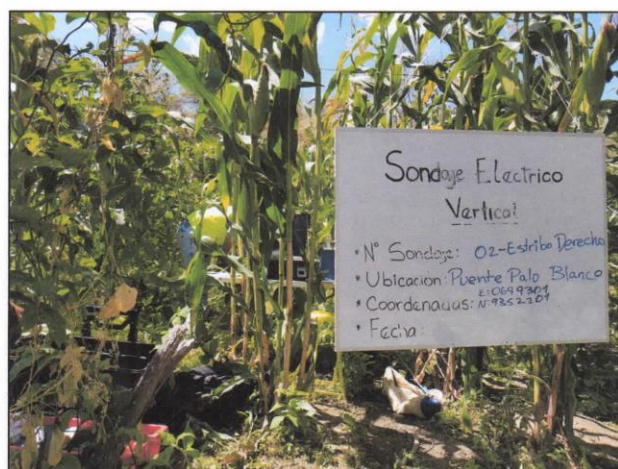 Sondaje Electrico
Vertical
• N° Sondaje: 02-Estribo Derecho
• Ubicacion: Puente Palo Blanco
• Coordenadas: E:0699301
N:9352201
• Fecha: